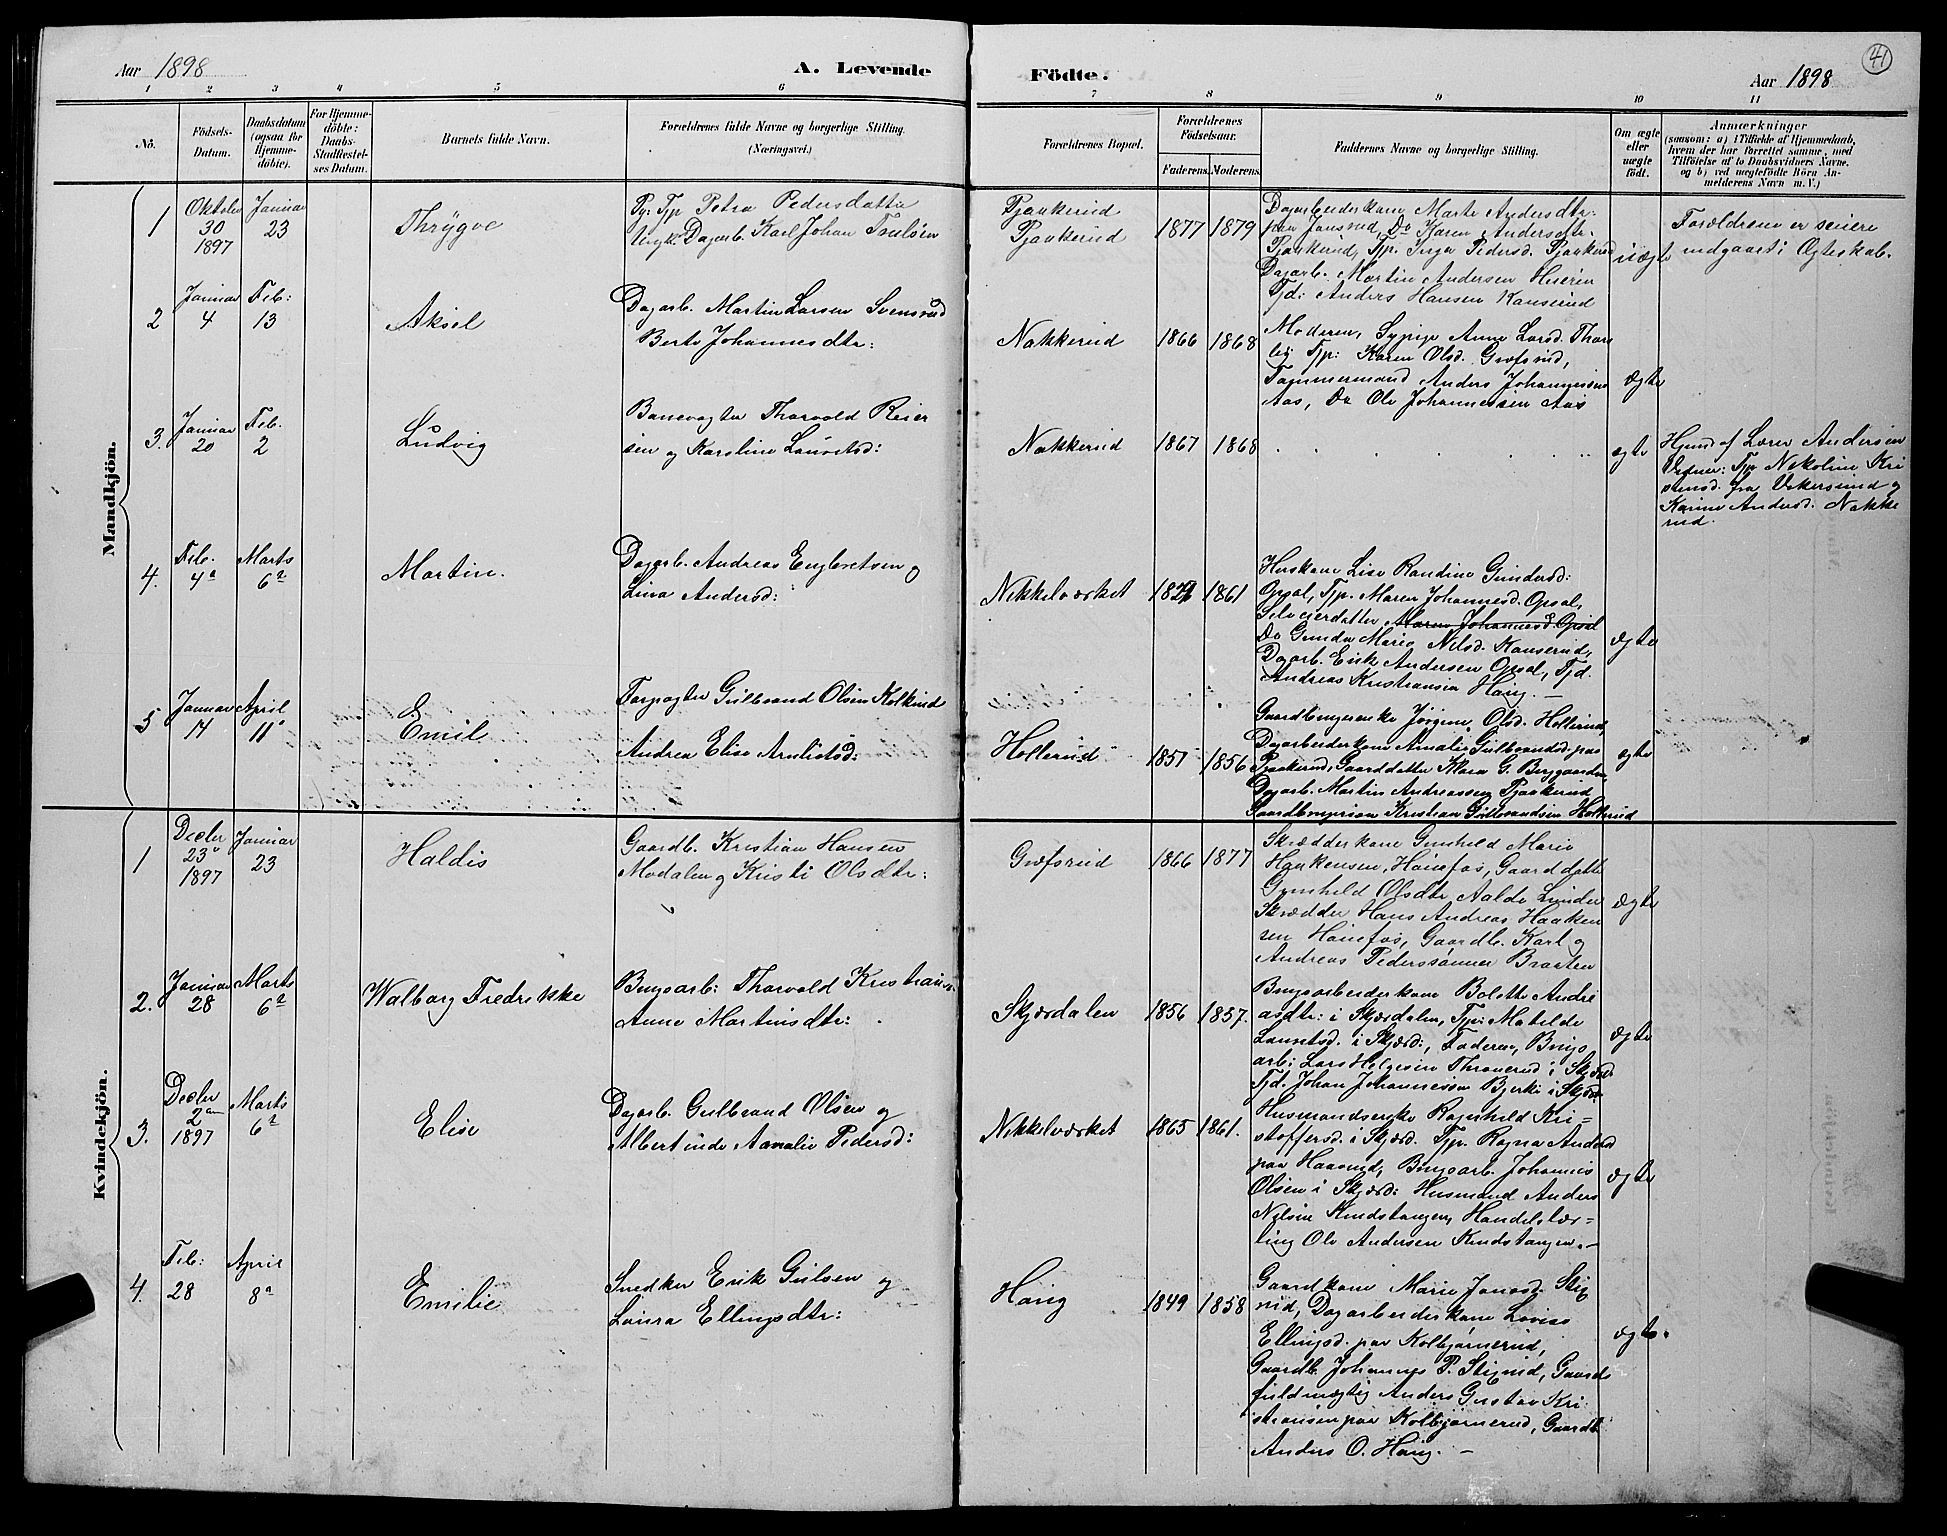 Aar 1898
A. Levende
Födte.
Aar 1898
41
1 2 3 4 5 6 7 8 9 10 11
No.
Födsels-
Datum.
Daabsdatum
(ogsaa for
Hjemme-
döbte).
For Hjemme-
döbte:
Daabs-
Stadfæstel-
ses Datum.
Barnets fulde Navn.
Forældrenes fulde Navne og borgerlige Stilling.
(Næringsvei.)
Forældrenes Bopæl.
Forældrenes
Födselsaar.
Faderens. Moderens.
Faddernes Navne og borgerlige Stilling.
Om ægte
eller
uægte
födt.
Anmærkninger
(saasom: a) i Tilfælde af Hjemmedaab,
hvem der har forrettet samme, med
Tilföielse af to Daabsvidners Navne.
og b) ved uægtefödte Börn An-
melderens Navn m. V.)
Mandkjön.
1
Oktober
30
1897
Januar
23
Thrygve
Pg. Tjp Petra Pedersdatter
Ungk. Dagarb. Karl Johan Truls̈en
Pjaakerud
Pjaakerud
1877 1879
Dagarbeiderkone Marte Andersdtr.
paa Jonsrud, Do Karen Andersdtr.
Pjaakerud, Tjp. Inga Pedersd. Pjaakerud
Dagarb. Martin Andersen
Tjd: Anders Hansen Kanserud
uægte
Forældrene er senere
indgaaet i Ægteskab.
2
Januar
4
Feb:
13
Aksel
Dagarb. Martin Larsen Svensrud
Berte Johannesdtr:
Nakkerud
1866 1868
Moderen, Sypige Anne Larsd. Thor
Tjp: Karen Olsd. Græfsrud,
Tømmermand Anders Johannesen
Aas, Do Ole Johannessen Aas
ægte
3.
Januar
20
Feb.
2
Ludvig
Banevogter Thorvald Reier
sen og Karoline Lauritsd:
Nakkerud
1867 1868
ægte
Hjmd af Lærer Andersen
Vidner: Tjp Nikoline Kri
stensd. fra Vikersund og
Karine Andersd. Nakke
rud.
4.
Feb.
4
Marts
6
Martin.
Dagarb. Andreas Engbretsen og
Lina Andersd:
Nikkelværket
1861
Huskone Lise Randine Gundersd:
Opsal, Tjp. Maren Johannesd. Opsal,
Selveierdatter Maren Johannesd. Opsal
Do Gunda Marie Nilsd. Kanserud,
Dagarb. Erik Andersen Opsal, Tjd.
Andreas Kristiansen Haug. —
ægte
5
Januar
14
April
11
Emil
Forpagter Gulbrand Olsen Kolkind
Andrea Elise Arnhistsd:
Hollerud
1851 1856
Gaardbrugerenke Jørgine Olsd. Hollerud,
Dagarbeiderkone Amalie Gulbrandsd. paa
Pjaakerud, Gaarddatter Klara G. Berggaarden
Dagarb. Martin Andreassen Pjaakerud
Gaardbrugersøn Kristian Gulbrandsen Hollerud
ægte
Kvindekjön.
1
Decbr
23
1897
Januar
23
Haldis
Gaardb. Kristian Hansen
Modalen og Kristi Olsdtr:
Græfsrud
1866 1877
Skrædderkone Gunhild Marie
Haakensen, Hønefos, Gaarddatter
Gunhild Olsdtr. Aalde Lunder
Skrædder Hans Andreas Haaken
sen Hønefos, Gaardb. Karl og
Andreas Pederssønner Braaten
ægte
2.
Januar
28
Marts
6
Walborg Fredrikke
Brugsarb: Thorvald Kristians.
Anne Martinsdtr:
Skjærdalen
1856 1857.
Brugsarbeiderkone Bolette Andre
asdtr: i Skjærdalen, Tjp: Matilde
Lauretsd. i Skjærd:, Faderen, Brugs
arb: Lars Helgesen Thronrud i Skjærd
Tjd. Johan Johannessen Bjerke i Skjærd
ægte
3.
Decbr
2
1897
Marts
6
Elise
Dagarb. Gulbrand Olsen og
Albertinde Aamalie Pedersd:
Nikkelværket
1865 1861.
Husmandsenke Ragnhild Kri=
stoffersd. i Skjærd. Tjp. Ragna Andersd
paa Haavrud, Brugsarb. Johannes
Olsen i Skjærd: Husmand Anders
Nilsen Kindstangen, Handelslær=
ling Ole Andersen Kindstangen. —
ægte
4.
Feb:
28
April
8
Emilie
Snedker Erik Gulsen og
Laura Ellingsdtr:
Haug
1849 1858
Gaardkone Marie Jonsd. Stig
rud, Dagarbeiderkone Lovise
Ellingsd. paa Kolbjørnerud,
Gaardb. Johannes P. Stigrud, Gaards
fuldmægtig Anders Gustav Kri
stiansen paa Kolbjørnerud, Gaardb.
Anders O. Haug. —
ægte.